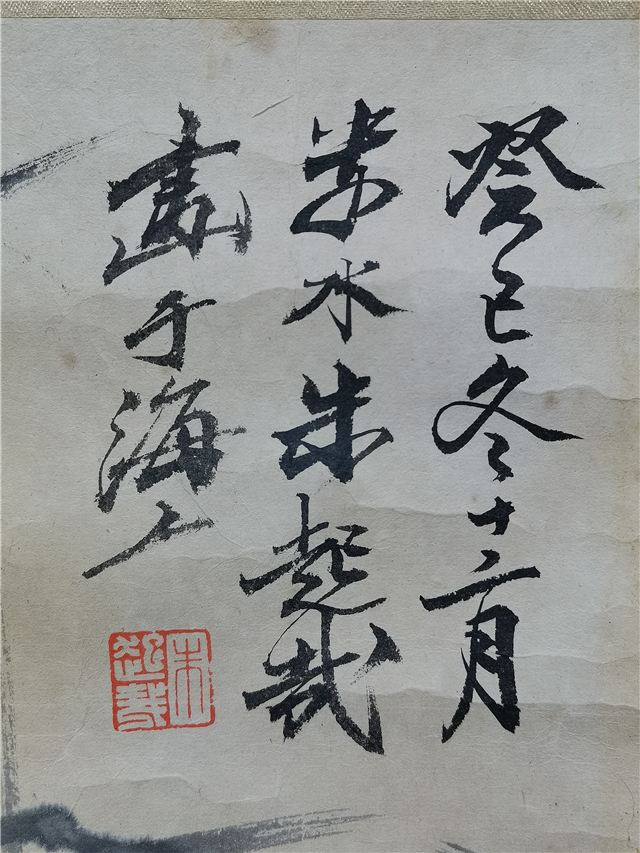 癸巳冬十二月
娄水朱起哉
畫于海上
朱起哉